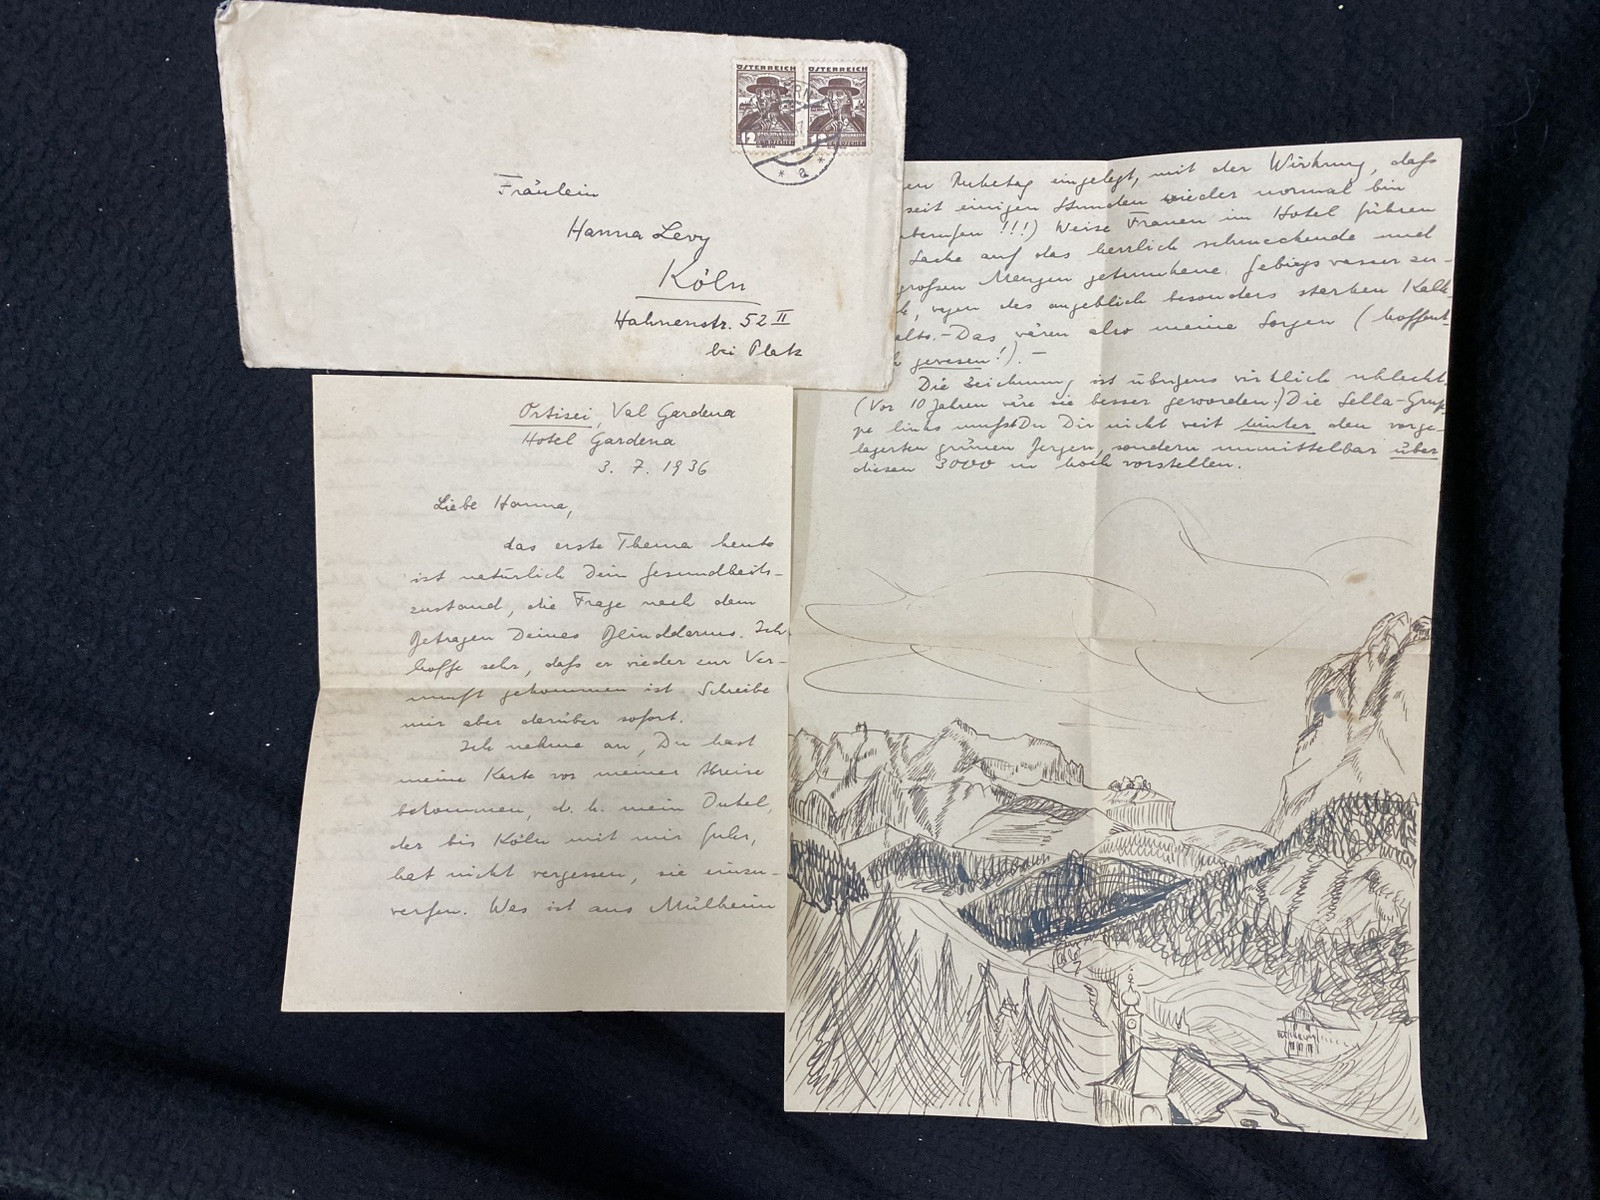 ÖSTERREICH
ÖSTERREICH
12
12
* a *
Fräulein
Hanna Levy
Köln
Hahnenstr. 52 II
bei Platz
Ortisei, Val Gardena
Hotel Gardena
3. 7. 1936
Liebe Hanna,
das erste Thema heute
ist natürlich Dein Gesundheits-
zustand, die Frage nach dem
Betragen Deines Blinddarms. Ich
hoffe sehr, daß er wieder zur Ver-
nunft gekommen ist. Schreibe
mir aber darüber sofort.
Ich nehme an, Du hast
meine Karte vor meiner Abreise
bekommen, d. h. mein Onkel,
der bis Köln mit mir fuhr,
hat nicht vergessen, sie einzu-
werfen. Was ist aus Mülheim
en Ruhetag eingelegt, mit der Wirkung, daß
seit einigen Stunden wieder normal bin
berufen !!!) Weise Frauen im Hotel führen
Sache auf das herrlich schmeckende und
großen Mengen getrunkene Gebirgswasser zu-
k, wegen des angeblich besonders starken Kalk-
alts. - Das wären also meine Sorgen (hoffent-
h gewesen!). -
Die Zeichnung ist übrigens wirklich schlecht.
(Vor 10 Jahren wäre sie besser geworden.) Die Sella-Grup-
pe links mußt Du Dir nicht weit hinter den vorge-
lagerten grünen Bergen, sondern unmittelbar über
diesen 3000 m hoch vorstellen.